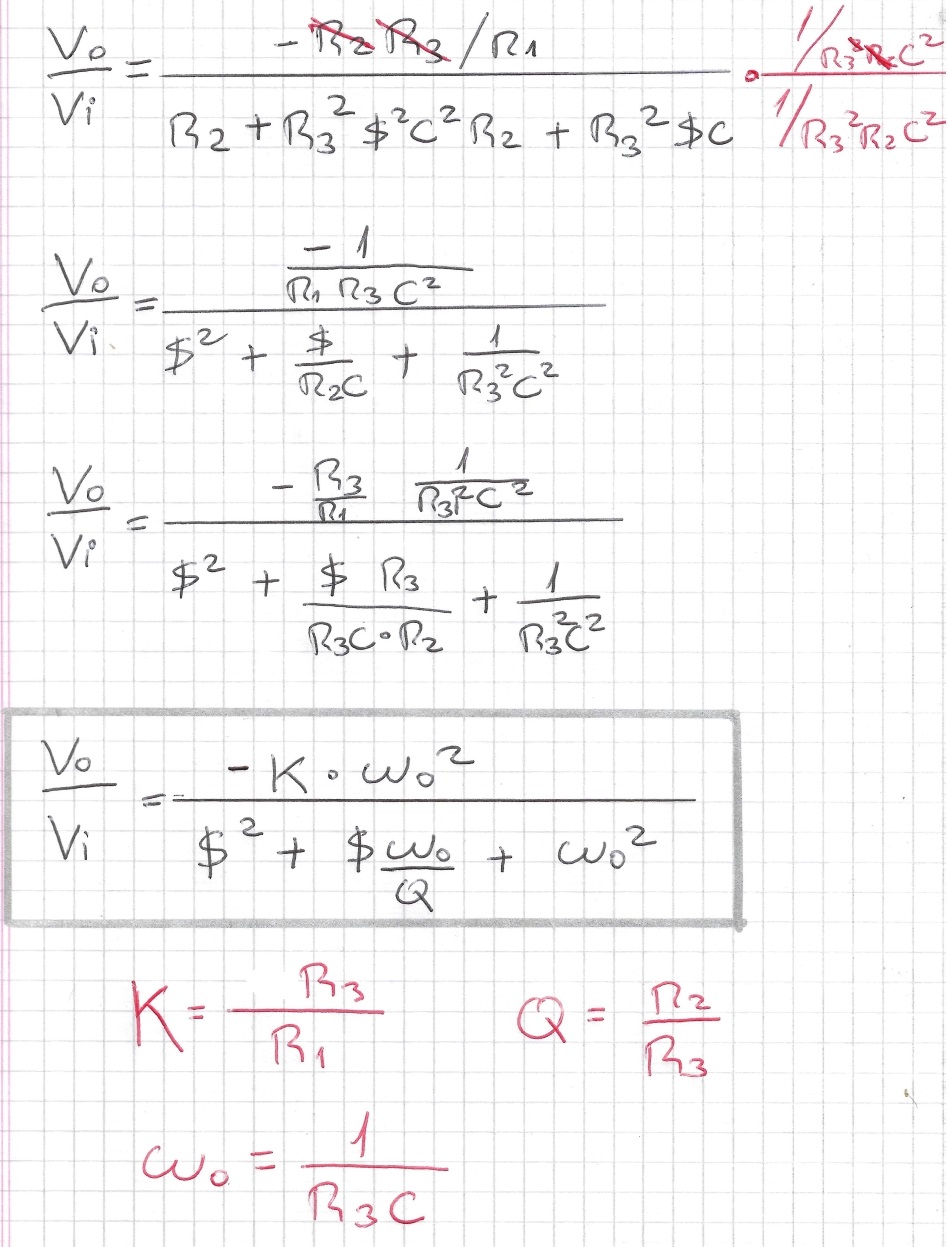 Vo/Vi = (-R2 R3 / R1) / (R2 + R3² $²C² R2 + R3² $C) • (1/R3²R2C²) / (1/R3²R2C²)
Vo/Vi = (-1 / (R1 R3 C²)) / ($² + $/(R2C) + 1/(R3²C²))
Vo/Vi = (-R3/R1 1/(R3²C²)) / ($² + $ R3/(R3C•R2) + 1/(R3²C²))
Vo/Vi = (-K • ω0²) / ($² + $ ω0/Q + ω0²)
K = R3/R1 Q = R2/R3
ω0 = 1/(R3C)